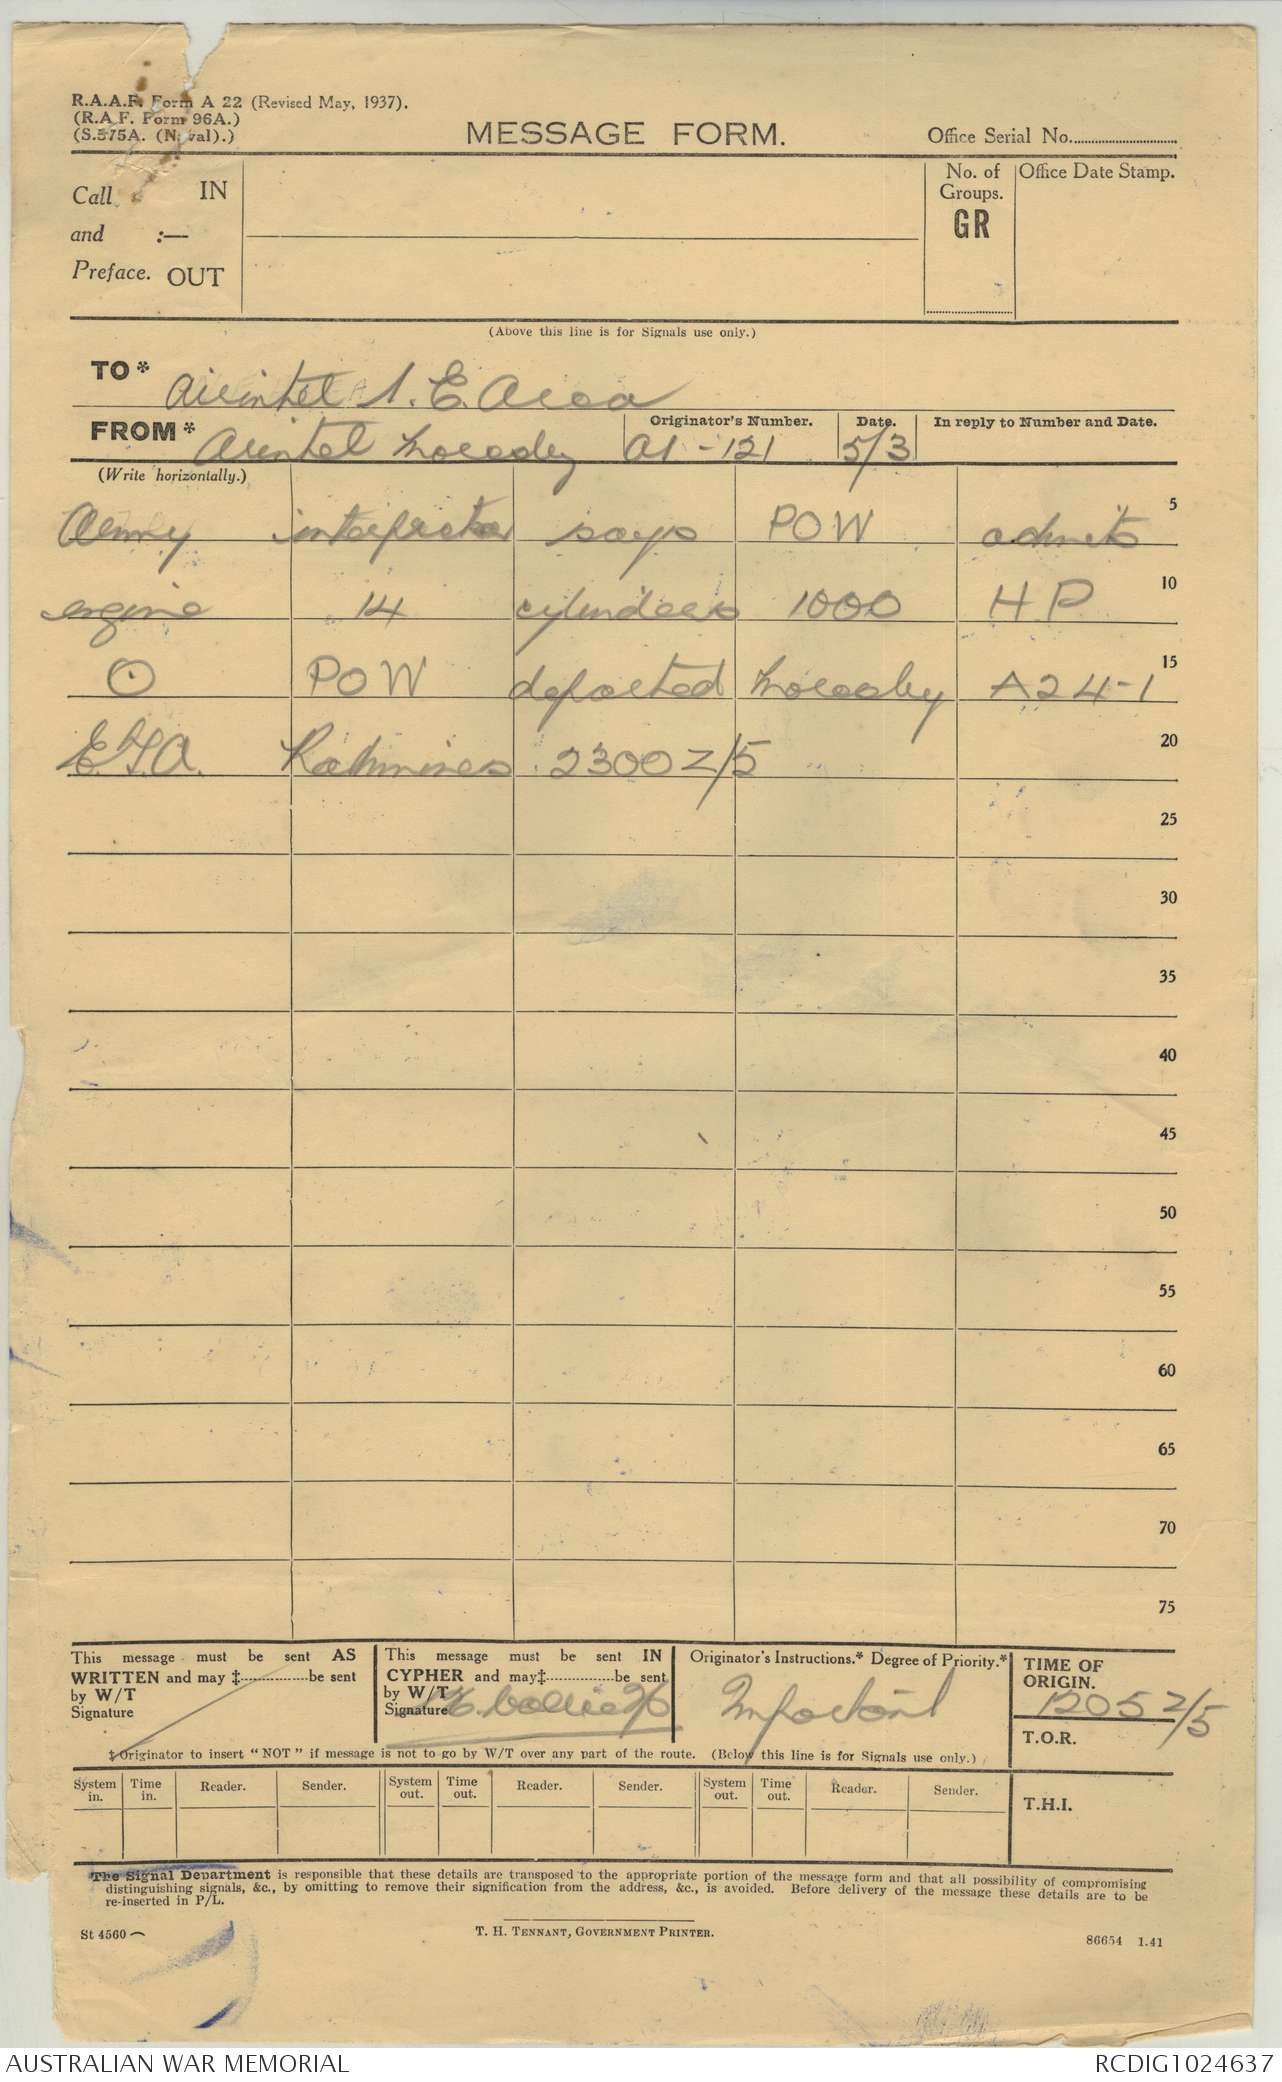 R.A.A.F. Form A 22 (Revised May, 1937).
(R.A.F. Form 96A.)
(S.575A. (Naval).)
MESSAGE FORM.
Office Serial No.
Call IN
and :—
Preface. OUT
No. of Groups.
GR
Office Date Stamp.
(Above this line is for Signals use only.)
TO* Airintel N.E. Area
FROM* Airintel Moresby
Originator's Number. A1-121
Date. 5/3
In reply to Number and Date.
(Write horizontally.)
Army interpreter says POW admits 5
engine 14 cylinders 1000 H.P 10
O POW departed Moresby A24-1 15
E.T.A. Rathmines 2300Z/5 20
25
30
35
40
45
50
55
60
65
70
75
This message must be sent AS
WRITTEN and may ‡ be sent
by W/T
Signature
This message must be sent IN
CYPHER and may‡ be sent
by W/T
Signature
Originator's Instructions.* Degree of Priority.*
Important
TIME OF
ORIGIN.
1205Z/5
T.O.R.
‡ Originator to insert "NOT" if message is not to go by W/T over any part of the route. (Below this line is for Signals use only.)
System in. Time in. Reader. Sender. System out. Time out. Reader. Sender. System out. Time out. Reader. Sender.
T.H.I.
The Signal Department is responsible that these details are transposed to the appropriate portion of the message form and that all possibility of compromising
distinguishing signals, &c., by omitting to remove their signification from the address, &c., is avoided. Before delivery of the message these details are to be
re-inserted in P/L.
St 4560
T. H. TENNANT, GOVERNMENT PRINTER.
86654 1.41
AUSTRALIAN WAR MEMORIAL
RCDIG1024637